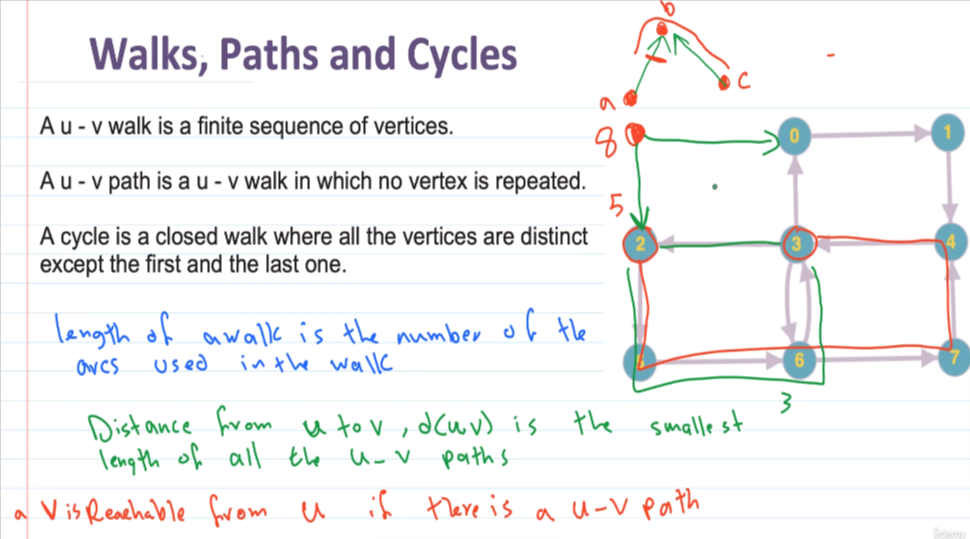 Walks, Paths and Cycles
A u - v walk is a finite sequence of vertices.
A u - v path is a u - v walk in which no vertex is repeated.
A cycle is a closed walk where all the vertices are distinct
except the first and the last one.
length of a walk is the number of the
arcs used in the walk
Distance from u to v, d(uv) is the smallest
length of all the u-v paths
a V is Reachable from u if there is a u-v path
b
a
c
8
0
1
5
2
3
4
6
7
3